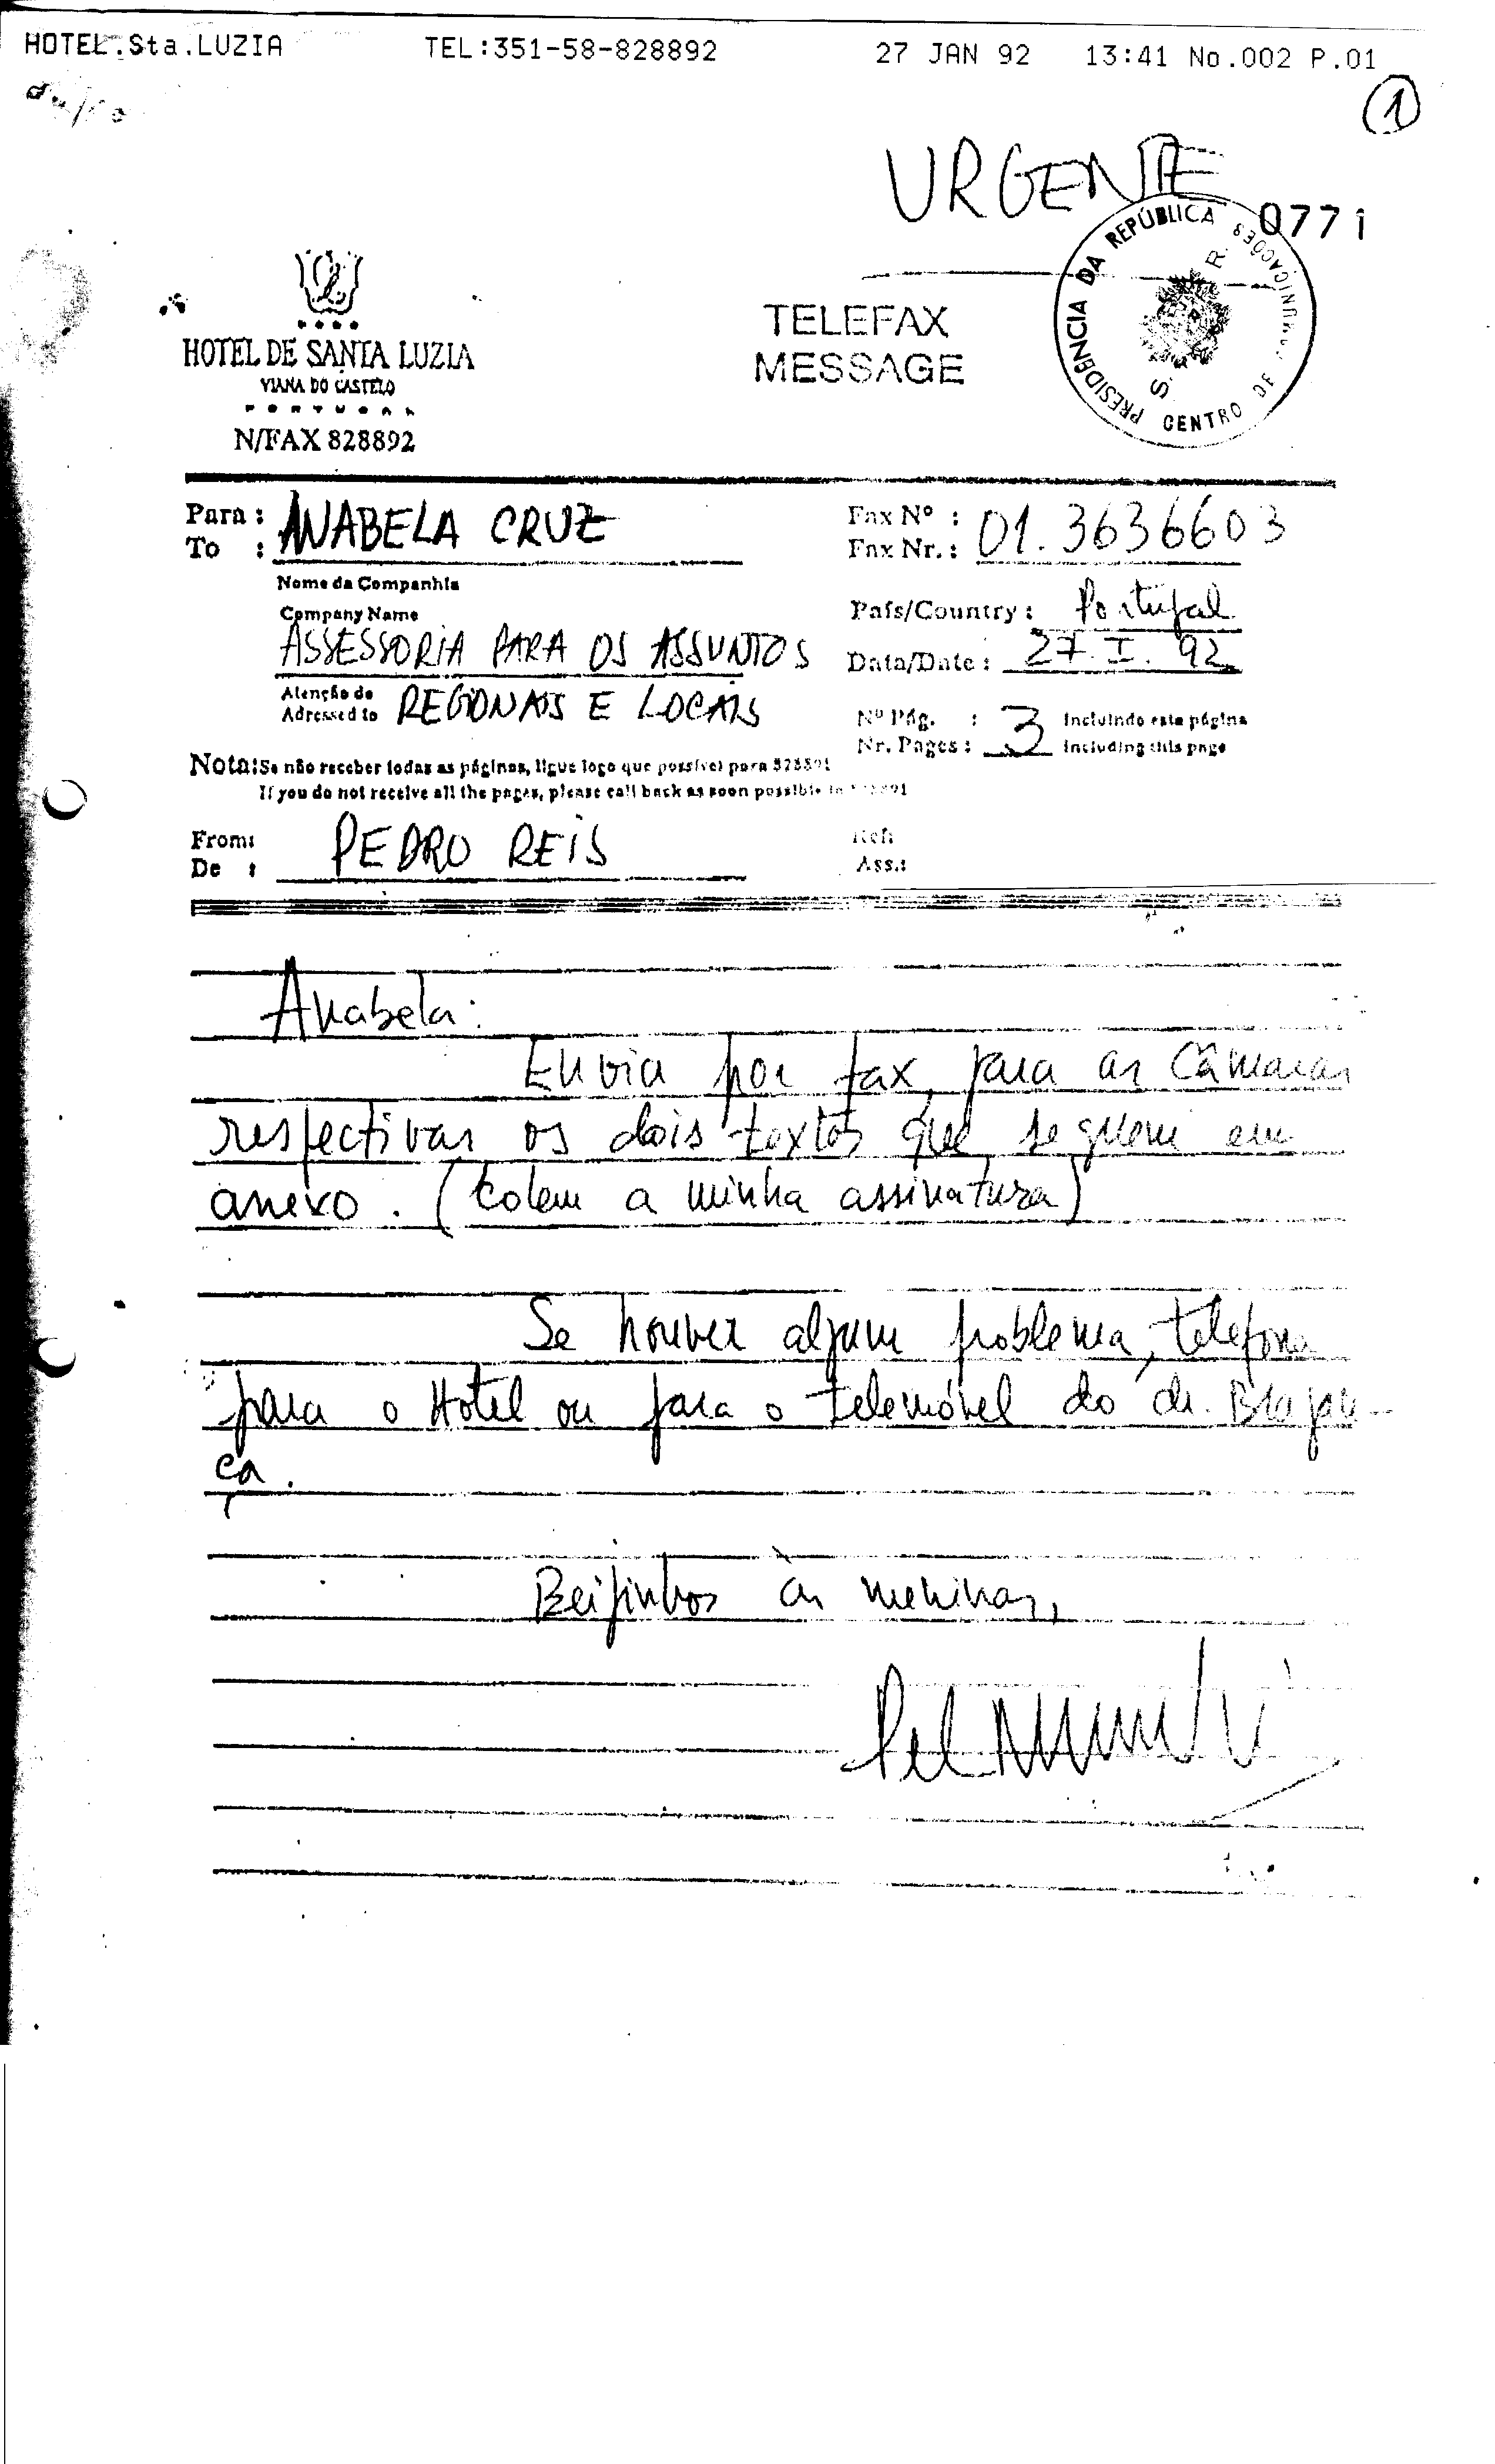 HOTEL.Sta.LUZIA TEL:351-58-828892 27 JAN 92 13:41 No.002 P.01
1
URGENTE
0771
PRESIDÊNCIA DA REPÚBLICA
CENTRO DE COMUNICAÇÕES
S. R.
TELEFAX
MESSAGE
HOTEL DE SANTA LUZIA
VIANA DO CASTELO
PORTUGAL
N/FAX 828892
Para : ANABELA CRUZ Fax Nº : 01.3636603
To : Fax Nr. :
Nome da Companhia
Company Name País/Country : Portugal
ASSESSORIA PARA OS ASSUNTOS Data/Date : 27.I.92
Atenção de
Adressed to REGIONAIS E LOCAIS
Nº Pág. : 3 Incluindo esta página
Nr. Pages : Including this page
Nota: Se não receber todas as páginas, ligue logo que possível para 828891
If you do not receive all the pages, please call back as soon possible to 828891
From: PEDRO REIS Ref:
De : Ass.:
Anabela:
Envia por fax, para as Câmaras
respectivas os dois textos que seguem em
anexo. (Colem a minha assinatura)
Se houver algum problema, telefona
para o Hotel ou para o telemóvel do dr. Bragan-
ça.
Beijinhos às meninas,